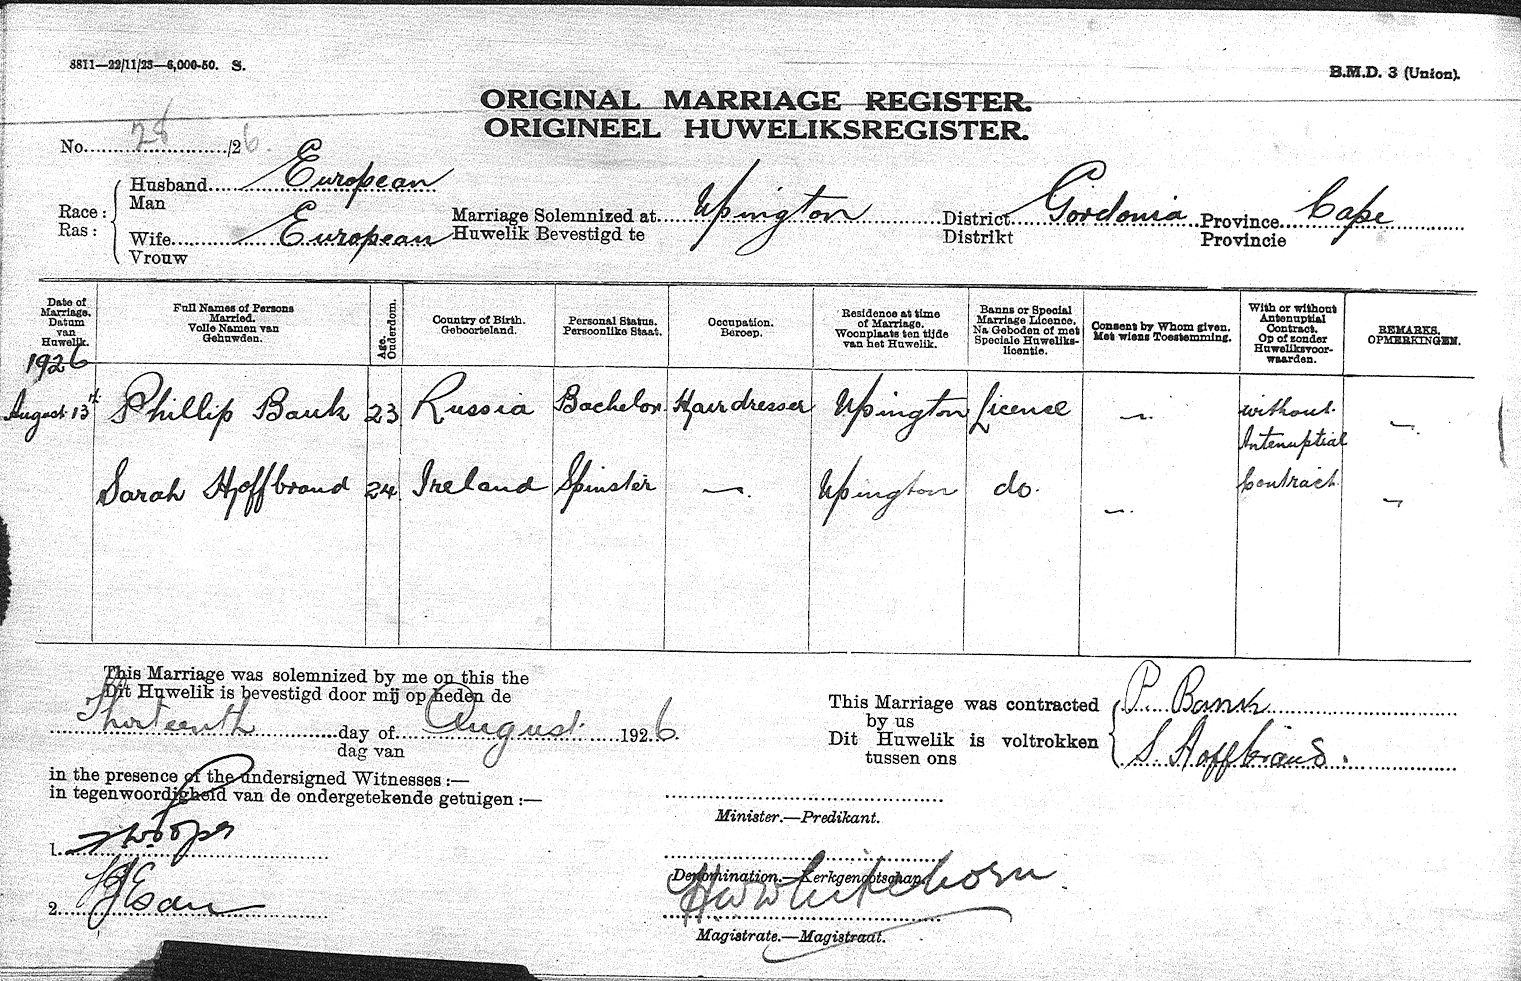 8811—22/11/23—6,000-50. S.
B.M.D. 3 (Union).
ORIGINAL MARRIAGE REGISTER.
ORIGINEEL HUWELIKSREGISTER.
No. 28/26.
Race: Husband European
Ras: Man
Wife European
Vrouw
Marriage Solemnized at Upington District Gordonia Province Cape
Huwelik Bevestigd te Distrikt Provincie
Date of Marriage. Datum van Huwelik.
Full Names of Persons Married. Volle Namen van Gehuwden.
Age. Ouderdom.
Country of Birth. Geboorteland.
Personal Status. Persoonlike Staat.
Occupation. Beroep.
Residence at time of Marriage. Woonplaats ten tijde van het Huwelik.
Banns or Special Marriage Licence. Na Geboden of met Speciale Huweliks-licentie.
Consent by Whom given. Met wiens Toestemming.
With or without Antenuptial Contract. Op of zonder Huweliksvoor-waarden.
REMARKS. OPMERKINGEN.
1926
August 13th Phillip Bank 23 Russia Bachelor Hairdresser Upington License — without Antenuptial —
Sarah Hoffbrand 24 Ireland Spinster — Upington do. — Contract —
This Marriage was solemnized by me on this the
Dit Huwelik is bevestigd door mij op heden de
Thirteenth day of August 1926.
dag van
in the presence of the undersigned Witnesses:—
in tegenwoordigheid van de ondergetekende getuigen:—
1.
2.
This Marriage was contracted by us
Dit Huwelik is voltrokken tussen ons
P. Bank
S. Hoffbrand.
Minister.—Predikant.
Denomination.—Kerkgenootschap.
Magistrate.—Magistraat.